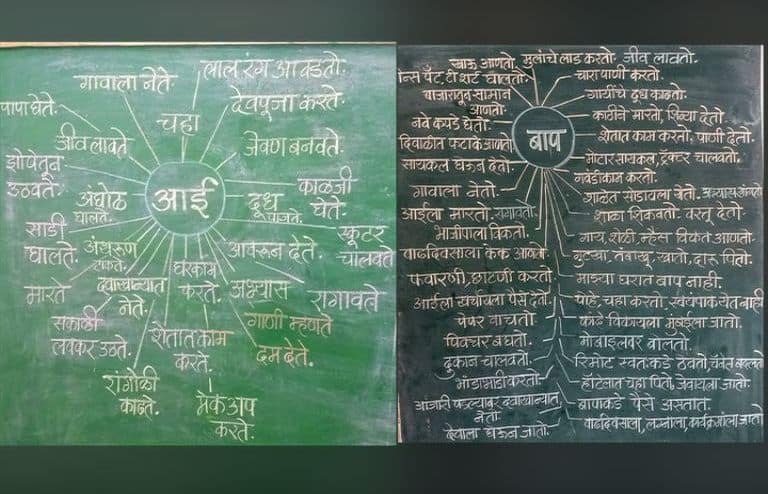 लाल रंग आवडतो.
गावाला नेते.
पापा घेते.
देवपूजा करते.
चहा
जीव लावते
जेवण बनवते.
झोपेतून
उठवते.
आई
काळजी
घेते.
अंघोळ
घालते.
दूध
पाजते.
स्कूटर
चालवते
साडी
घालते.
अंथरूण
टाकते.
आवरून देते.
घरकाम
करते.
अभ्यास
रागावते
मारते
दवाखान्यात
नेते.
गाणी म्हणते
सकाळी
लवकर उठते.
शेतात काम
करते.
दम देते.
रांगोळी
काढते.
मेकअप
करते.
खाऊ आणतो.
मुलांचे लाड करतो.
जीव लावतो.
पँट, टी शर्ट घालतो.
चारा पाणी करतो.
बाजारातून सामान
आणतो.
गायींचे दूध काढतो.
नवे कपडे घेतो.
काठीने मारतो, शिव्या देतो.
बाप
दिवाळीत फटाके आणतो
शेतात काम करतो, पाणी देतो.
सायकल घेऊन देतो.
मोटारसायकल, ट्रॅक्टर चालवतो.
गवंडीकाम करतो.
गावाला नेतो.
शाळेत सोडायला येतो.
आईला मारतो, रागावतो.
शाळा शिकवतो. वस्तू देतो.
भाजीपाला विकतो.
गाय, शेळी, म्हैस विकत आणतो.
वाढदिवसाला केक आणतो.
गुटखा, तंबाखू खातो, दारू पितो.
फवारणी, छाटणी करतो.
माझ्या घरात बाप नाही.
आईला खर्चायला पैसे देतो.
पोहे, चहा करतो, स्वयंपाक येत नाही
पेपर वाचतो.
कांदे विकायला मुंबईला जातो.
पिक्चर बघतो.
मोबाइलवर बोलतो.
दुकान चालवतो.
रिमोट स्वतःकडे ठेवतो, चॅनेल बदलतो
भांडाभांडी करतो.
हॉटेलात चहा पितो, जेवायला जातो.
आजारी पडल्यावर दवाखान्यात
नेतो.
बापाकडे पैसे असतात.
देवाला घेऊन जातो.
वाढदिवसाला, लग्नाला, कार्यक्रमांला जातो